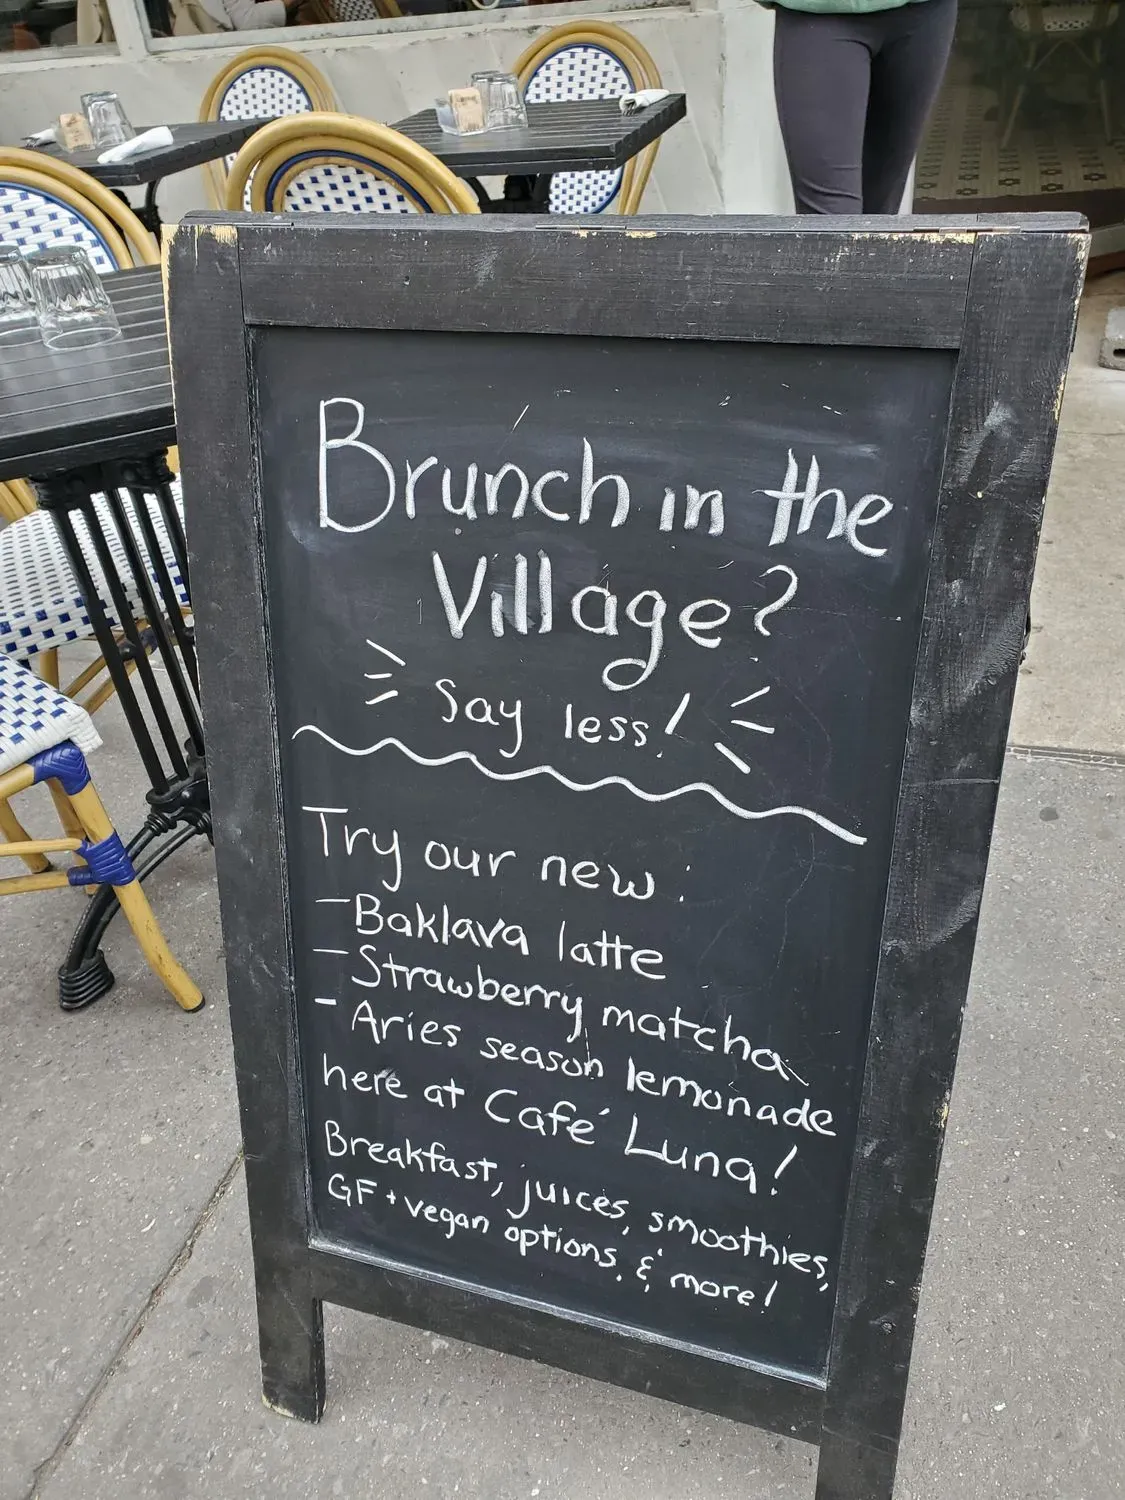 Brunch in the
Village?
Say less!
Try our new:
- Baklava latte
- Strawberry matcha
- Aries season lemonade
here at Café Luna!
Breakfast, juices, smoothies,
GF + vegan options, & more!